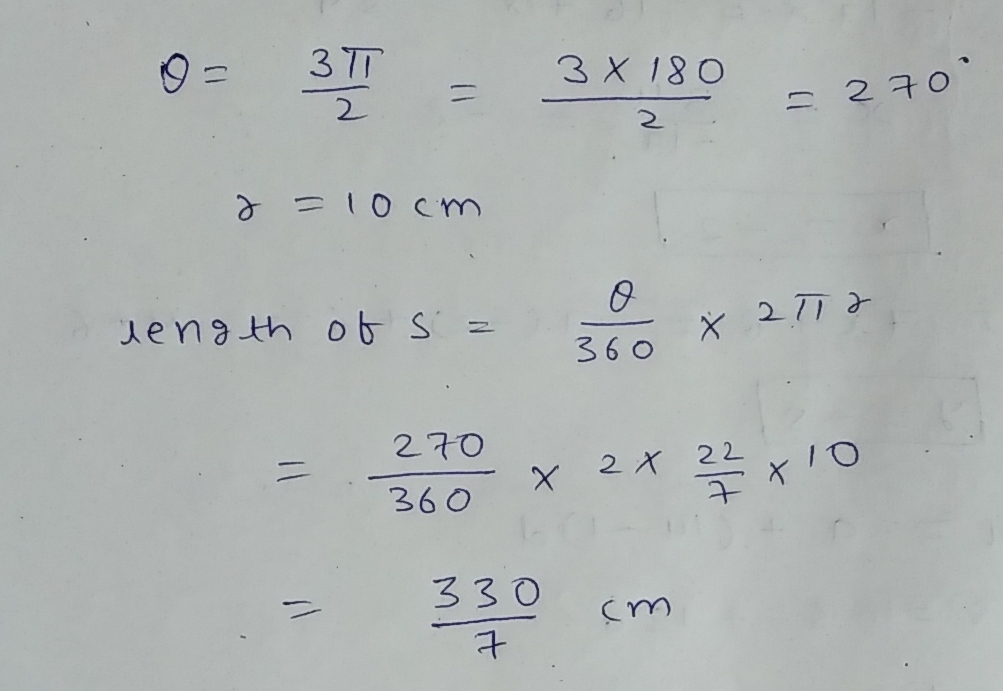 θ = 3π/2 = 3 × 180/2 = 270°
r = 10 cm
length of s = θ/360 × 2πr
= 270/360 × 2 × 22/7 × 10
= 330/7 cm